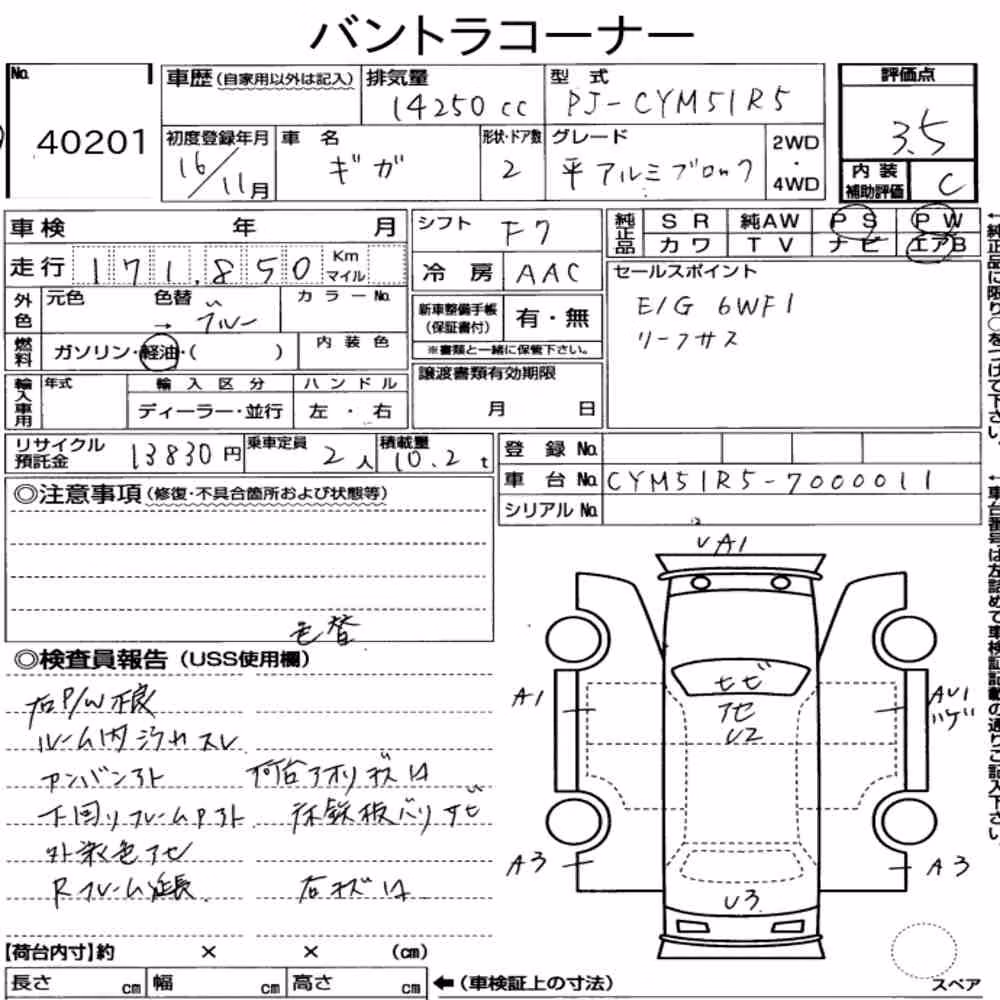 バントラコーナー
No.
40201
車歴(自家用以外は記入)
排気量
14250 cc
型 式
PJ-CYM51R5
評価点
3.5
初度登録年月
16/11月
車 名
ギガ
形状・ドア数
2
グレード
平 アルミブロック
2WD
・
4WD
内 装
補助評価
C
車検 年 月
シフト
F7
純正品
S R
純AW
P S
P W
カ ワ
T V
ナ ビ
エアB
走行 171,850 Km
マイル
冷 房 AAC
セールスポイント
E/G 6WF1
リーフサス
外色
元色 色替
→ ブルー
カ ラ ー No.
新車整備手帳
(保証書付)
有・無
※書類と一緒に保管下さい。
燃料
ガソリン・軽油・( )
内 装 色
譲渡書類有効期限
月 日
輸入車用
年式
輸 入 区 分
ハ ン ド ル
ディーラー・並行
左 ・ 右
リサイクル
預託金
13830円
乗車定員
2人
積載量
10.2t
登 録 No.
車 台 No. CYM51R5-7000011
シリアル No.
◎注意事項(修復・不具合箇所および状態等)
色替
◎検査員報告(USS使用欄)
右P/W不良
ルーム内汚れスレ
下回りフレームサビ
床鉄板バリサビ
外装色アセ
Rフレーム延長
UA1
ヒビ
アセ
U2
A1
AU1
ハゲ
A3
A3
U3
【荷台内寸】約 × × (cm)
長さ cm
幅 cm
高さ cm
←(車検証上の寸法)
スペア
←純正品に限り○をつけて下さい。
←車台番号は左詰めで車検証記載の通りご記入下さい。